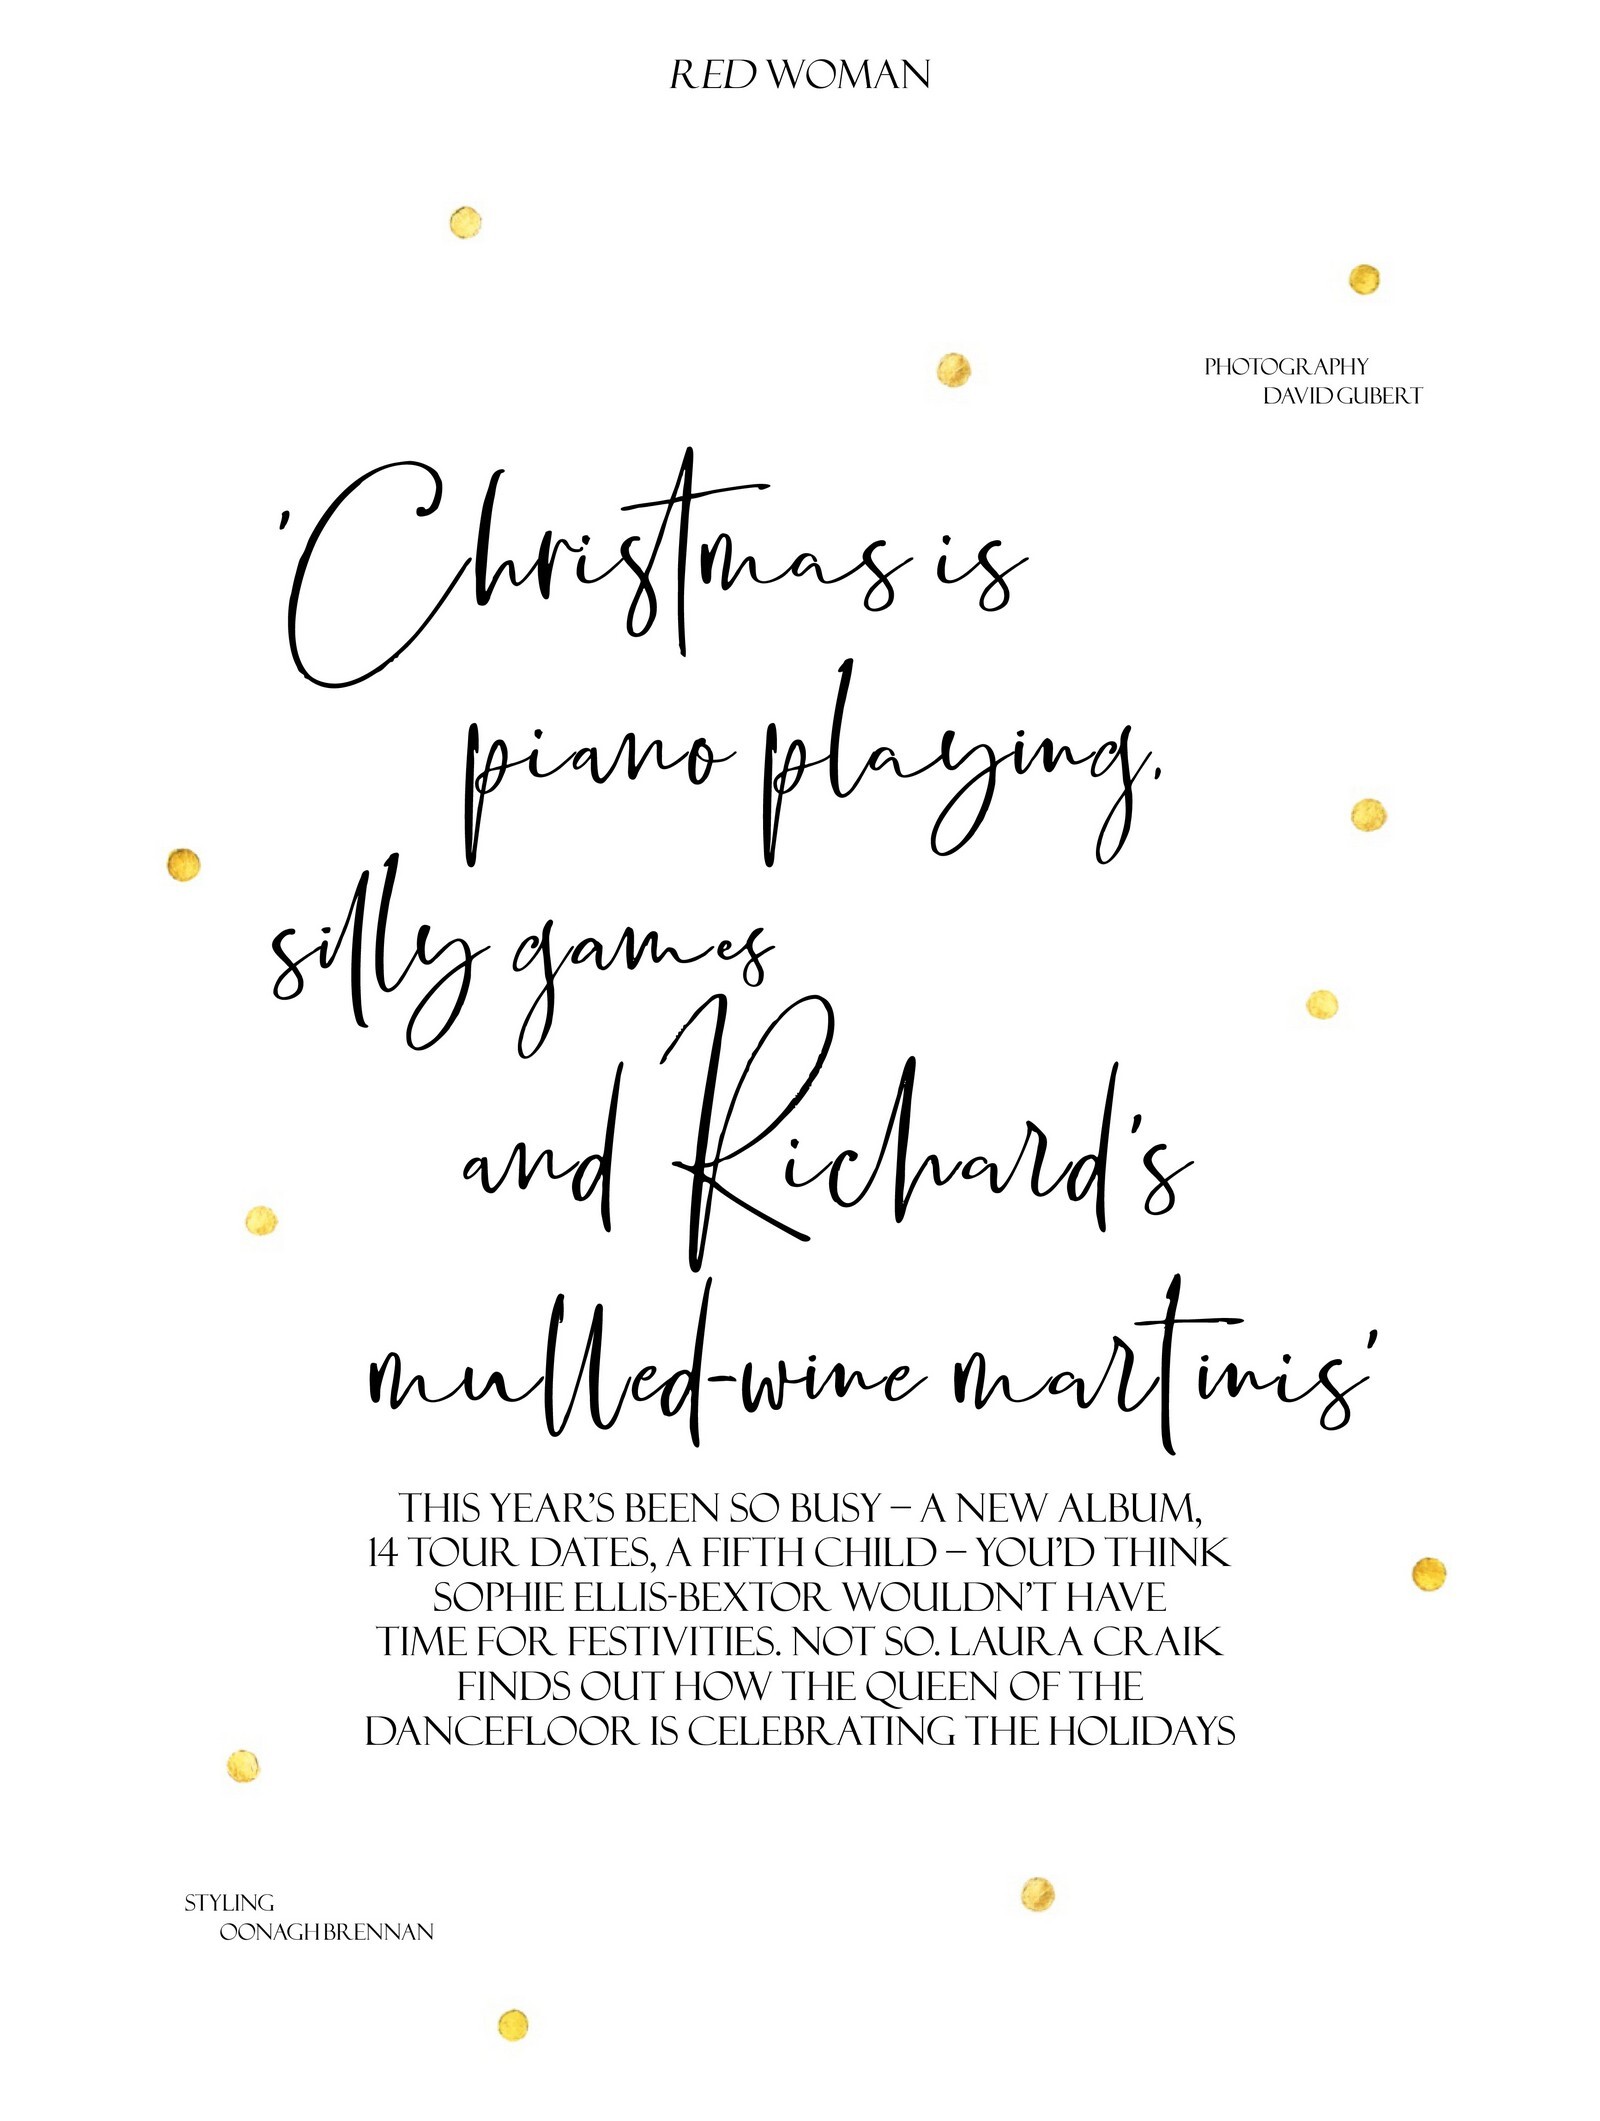 RED WOMAN
PHOTOGRAPHY
DAVID GUBERT
'Christmas is
piano playing,
silly games
and Richard's
mulled-wine martinis'
THIS YEAR'S BEEN SO BUSY – A NEW ALBUM,
14 TOUR DATES, A FIFTH CHILD – YOU'D THINK
SOPHIE ELLIS-BEXTOR WOULDN'T HAVE
TIME FOR FESTIVITIES. NOT SO. LAURA CRAIK
FINDS OUT HOW THE QUEEN OF THE
DANCEFLOOR IS CELEBRATING THE HOLIDAYS
STYLING
OONAGH BRENNAN